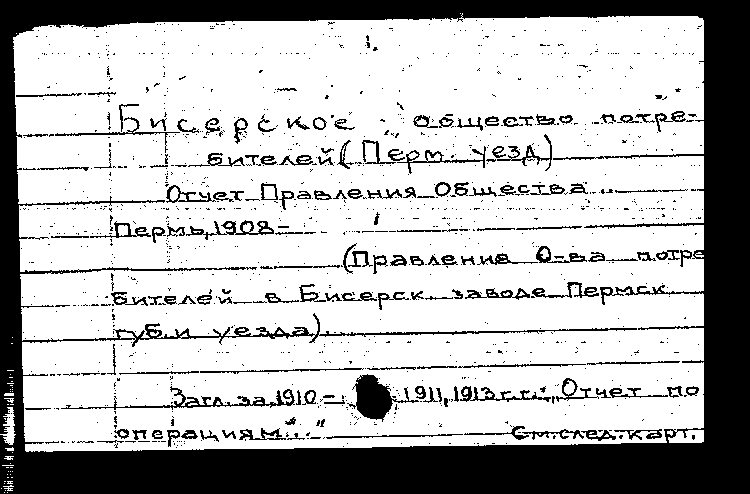 1.
Бисерское общество потре-
бителей (Перм. уезд)
Отчет Правления Общества ..
Пермь, 1908-
(Правления О-ва потре
бителей в Бисерск. заводе Пермск.
губ. и уезда).
Загл. за 1910 - 1911, 1913 г.г.: „Отчет по
операциям..."
См. след. карт.